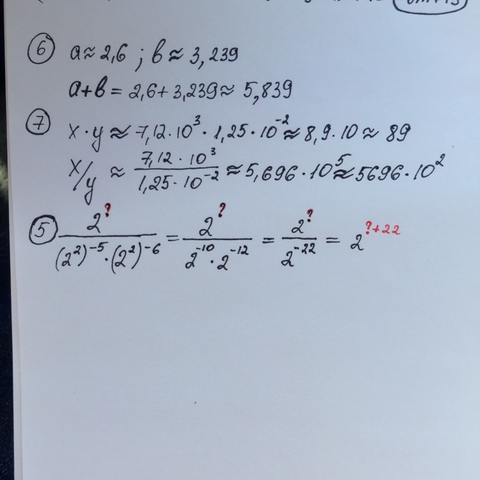 ⑥ a ≈ 2,6 ; b ≈ 3,239
a+b = 2,6 + 3,239 ≈ 5,839
⑦ x · y ≈ 7,12 · 10³ · 1,25 · 10⁻² ≈ 8,9 · 10 ≈ 89
x/y ≈ (7,12 · 10³)/(1,25 · 10⁻²) ≈ 5,696 · 10⁵ ≈ 5696 · 10²
⑤ 2^?/((2²)⁻⁵ · (2²)⁻⁶) = 2^?/(2⁻¹⁰ · 2⁻¹²) = 2^?/2⁻²² = 2^(?+22)